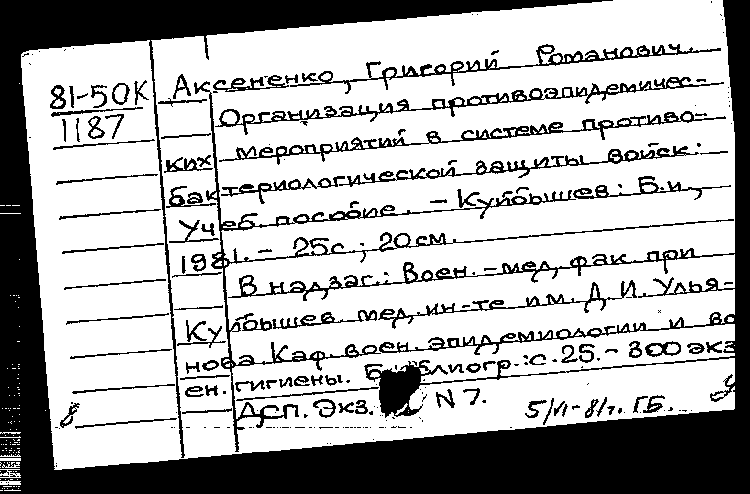 81-50К
1187
Аксененко, Григорий Романович.
Организация противоэпидемичес-
ких мероприятий в системе противо-
бактериологической защиты войск:
Учеб. пособие. - Куйбышев: Б.и.,
1981. - 25с.; 20см.
В надзаг.: Воен.-мед. фак. при
Куйбышев. мед. ин-те им. Д.И. Улья-
нова. Каф. воен. эпидемиологии и во
ен. гигиены. Библиогр.: с. 25. - 300 экз
Дсп. Экз. N 7.
8
5/VI-81г. ГБ.